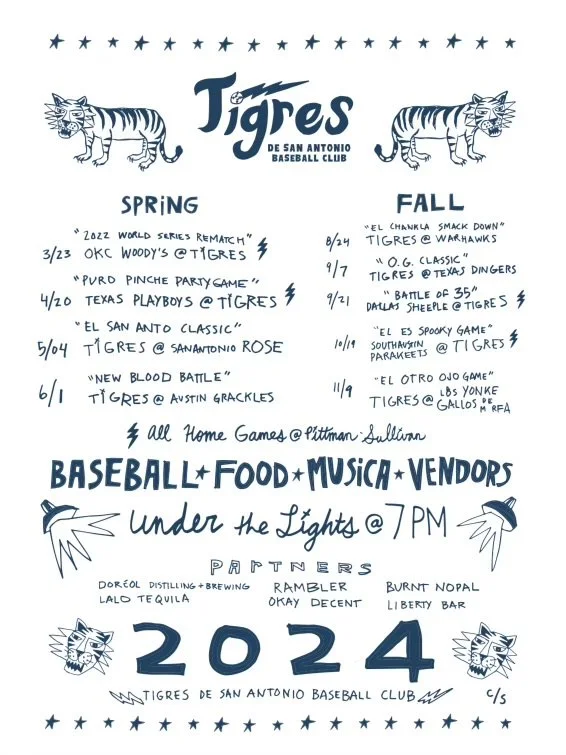 Tigres
DE SAN ANTONIO
BASEBALL CLUB
SPRING
"2022 WORLD SERIES REMATCH"
3/23 OKC WOODY'S @ TIGRES
"PURO PINCHE PARTY GAME"
4/20 TEXAS PLAYBOYS @ TIGRES
"EL SAN ANTO CLASSIC"
5/04 TIGRES @ SAN ANTONIO ROSE
"NEW BLOOD BATTLE"
6/1 TIGRES @ AUSTIN GRACKLES
FALL
"EL CHANKLA SMACK DOWN"
8/24 TIGRES @ WARHAWKS
"O.G. CLASSIC"
9/7 TIGRES @ TEXAS DINGERS
"BATTLE OF 35"
9/21 DALLAS SHEEPLE @ TIGRES
"EL ES SPOOKY GAME"
10/19 SOUTH AUSTIN PARAKEETS @ TIGRES
"EL OTRO OJO GAME"
11/9 TIGRES @ LOS YONKE GALLOS DE M RFA
All Home Games @ Pittman-Sullivan
BASEBALL★FOOD★MUSICA★VENDORS
under the Lights @ 7 PM
PARTNERS
DORĆOL DISTILLING + BREWING RAMBLER BURNT NOPAL
LALO TEQUILA OKAY DECENT LIBERTY BAR
2024
TIGRES DE SAN ANTONIO BASEBALL CLUB
C/S